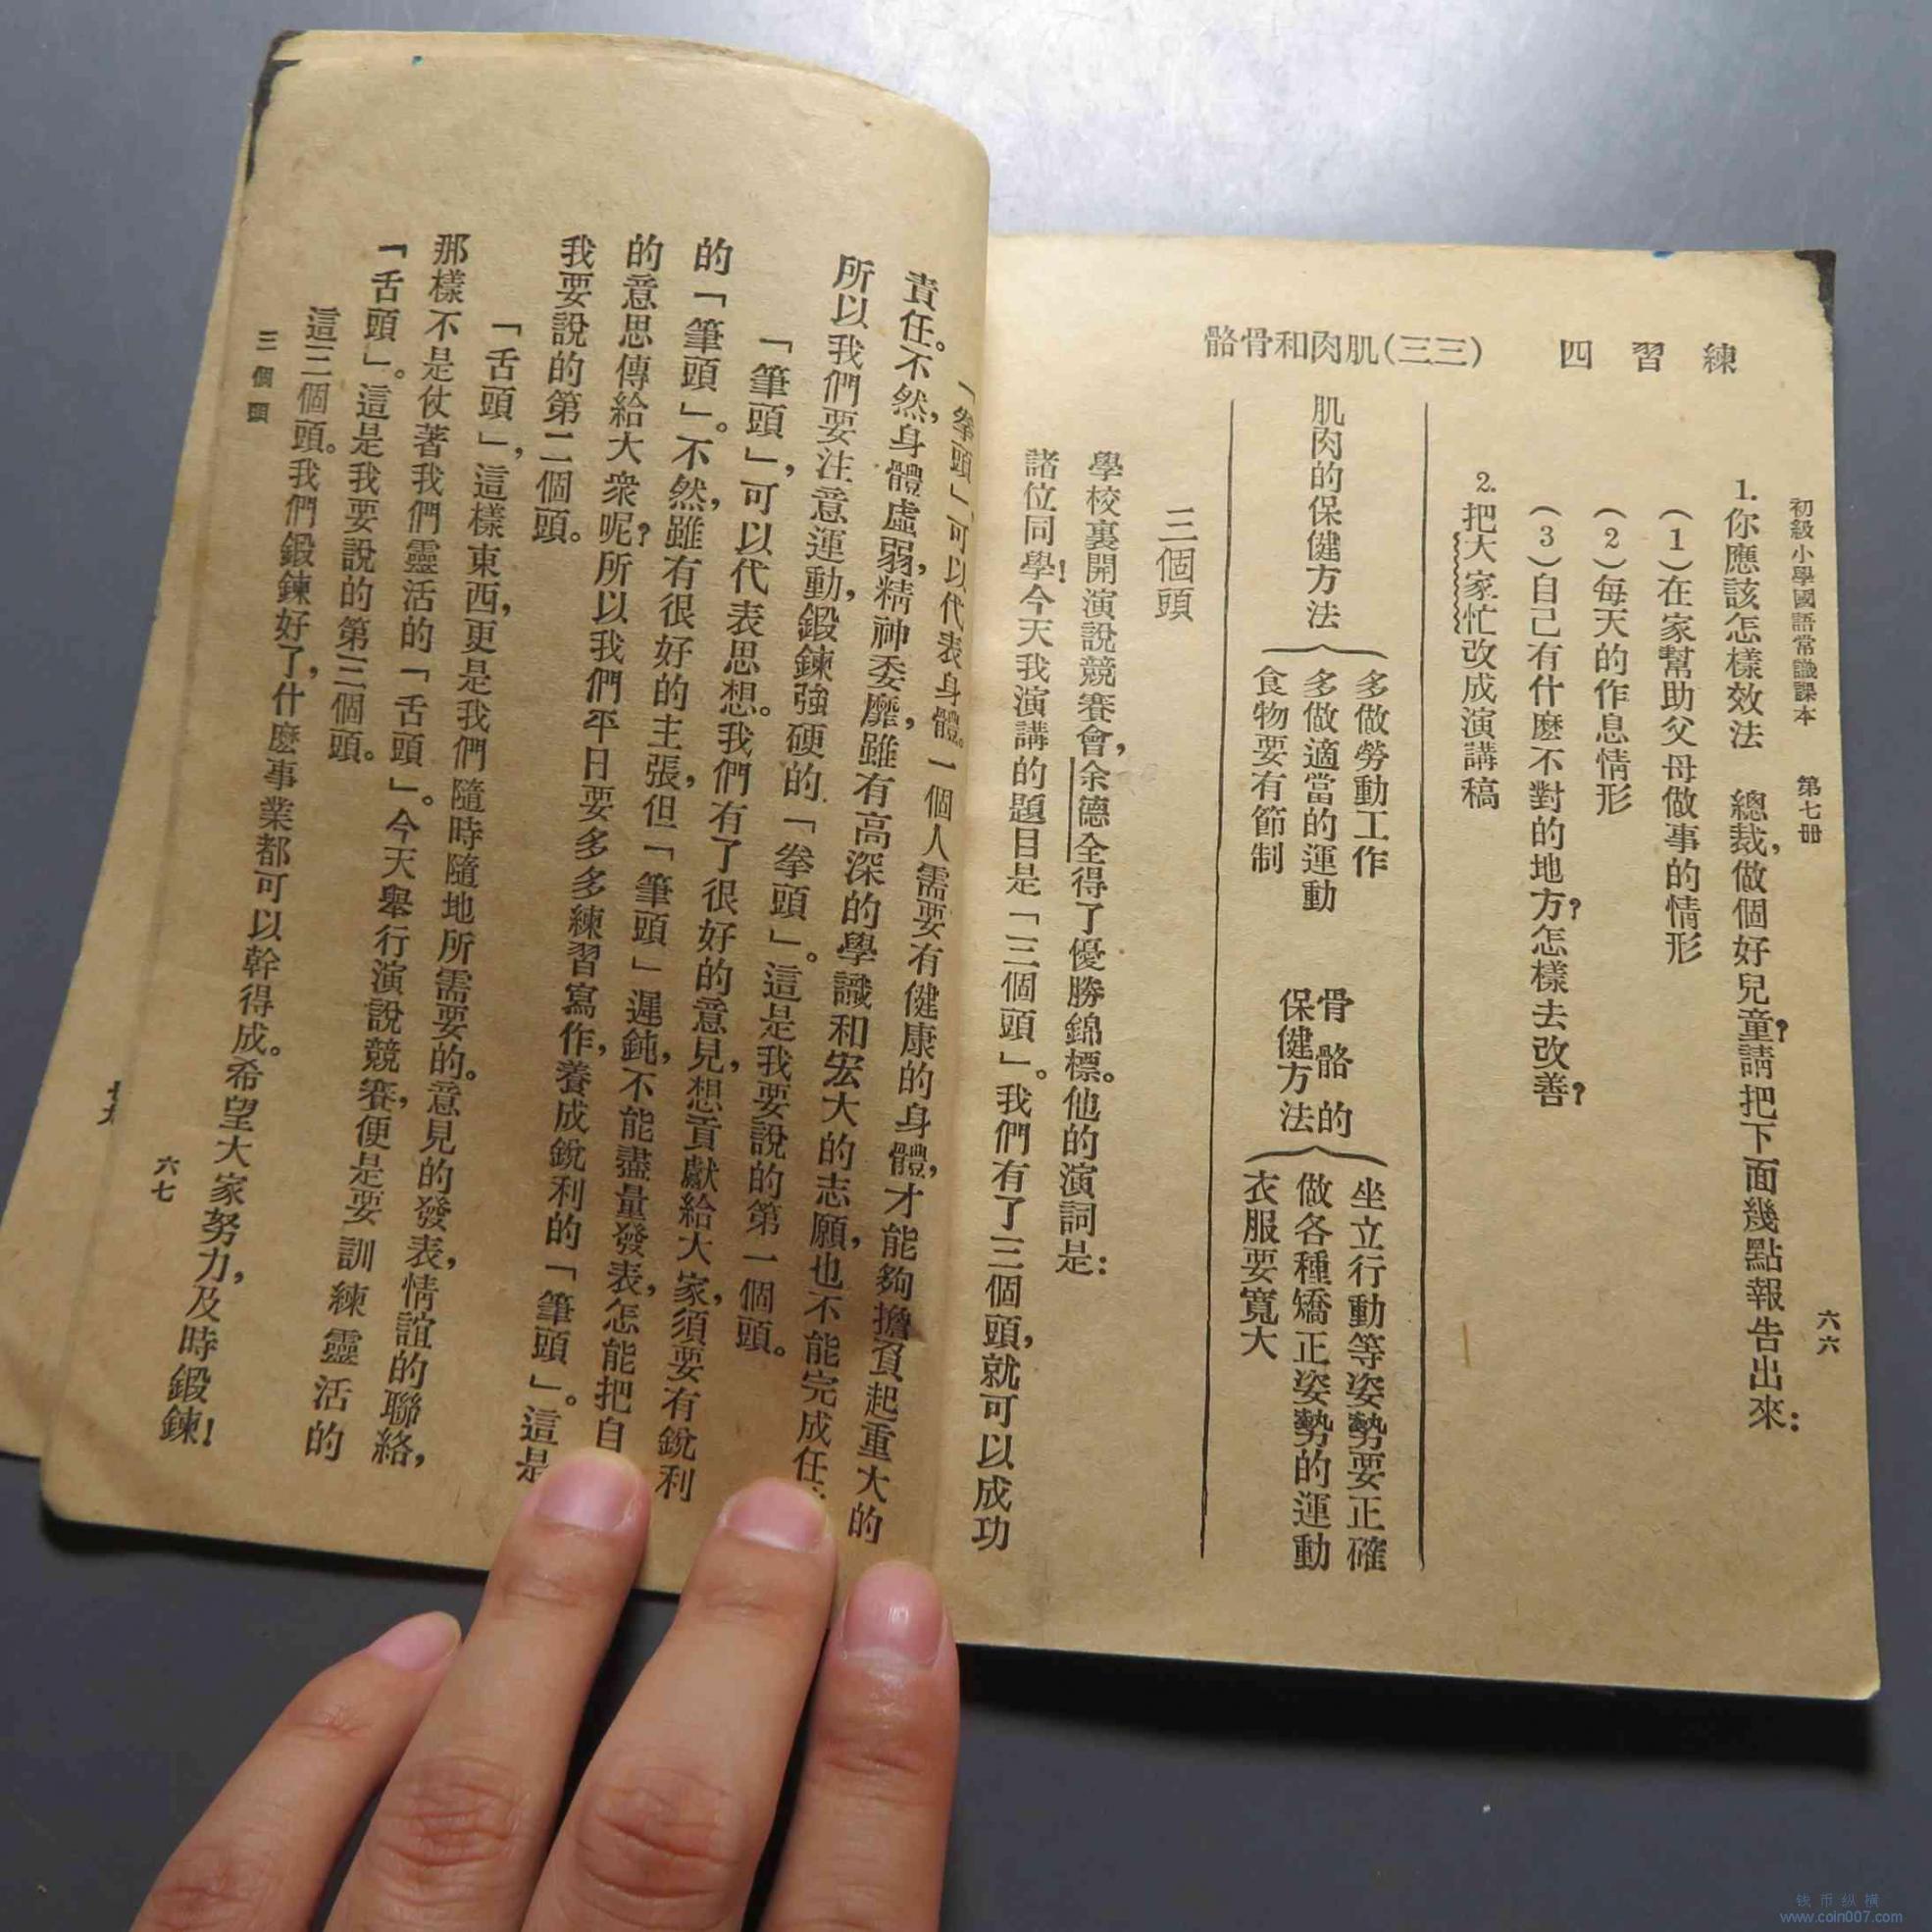 初級小學國語常識課本　第七冊　六六
練習四
1. 你應該怎樣效法　總裁，做個好兒童？請把下面幾點報告出來：
（1）在家幫助父母做事的情形
（2）每天的作息情形
（3）自己有什麼不對的地方？怎樣去改善？
2. 把大家忙改成演講稿
（三三）肌肉和骨骼
肌肉的保健方法
多做勞動工作
多做適當的運動
食物要有節制
骨骼的
保健方法
坐立行動等姿勢要正確
做各種矯正姿勢的運動
衣服要寬大
三個頭
學校裏開演說競賽會，余德全得了優勝錦標。他的演詞是：
諸位同學！今天我演講的題目是「三個頭」。我們有了三個頭，就可以成功
「拳頭」可以代表身體。一個人需要有健康的身體，才能夠擔負起重大的
責任。不然，身體虛弱，精神委靡，雖有高深的學識和宏大的志願，也不能完成任
所以我們要注意運動，鍛鍊強硬的「拳頭」。這是我要說的第一個頭。
「筆頭」，可以代表思想。我們有了很好的意見，想貢獻給大家，須要有銳利
的「筆頭」。不然，雖有很好的主張，但「筆頭」遲鈍，不能盡量發表，怎能把自
的意思傳給大衆呢？所以我們平日要多多練習寫作，養成銳利的「筆頭」。這是
我要說的第二個頭。
「舌頭」，這樣東西，更是我們隨時隨地所需要的。意見的發表，情誼的聯絡，
那樣不是仗著我們靈活的「舌頭」。今天舉行演說競賽，便是要訓練靈活的
「舌頭」。這是我要說的第三個頭。
這三個頭。我們鍛鍊好了，什麼事業都可以幹得成。希望大家努力，及時鍛鍊！
三個頭　六七
钱币纵横
www.coin007.com